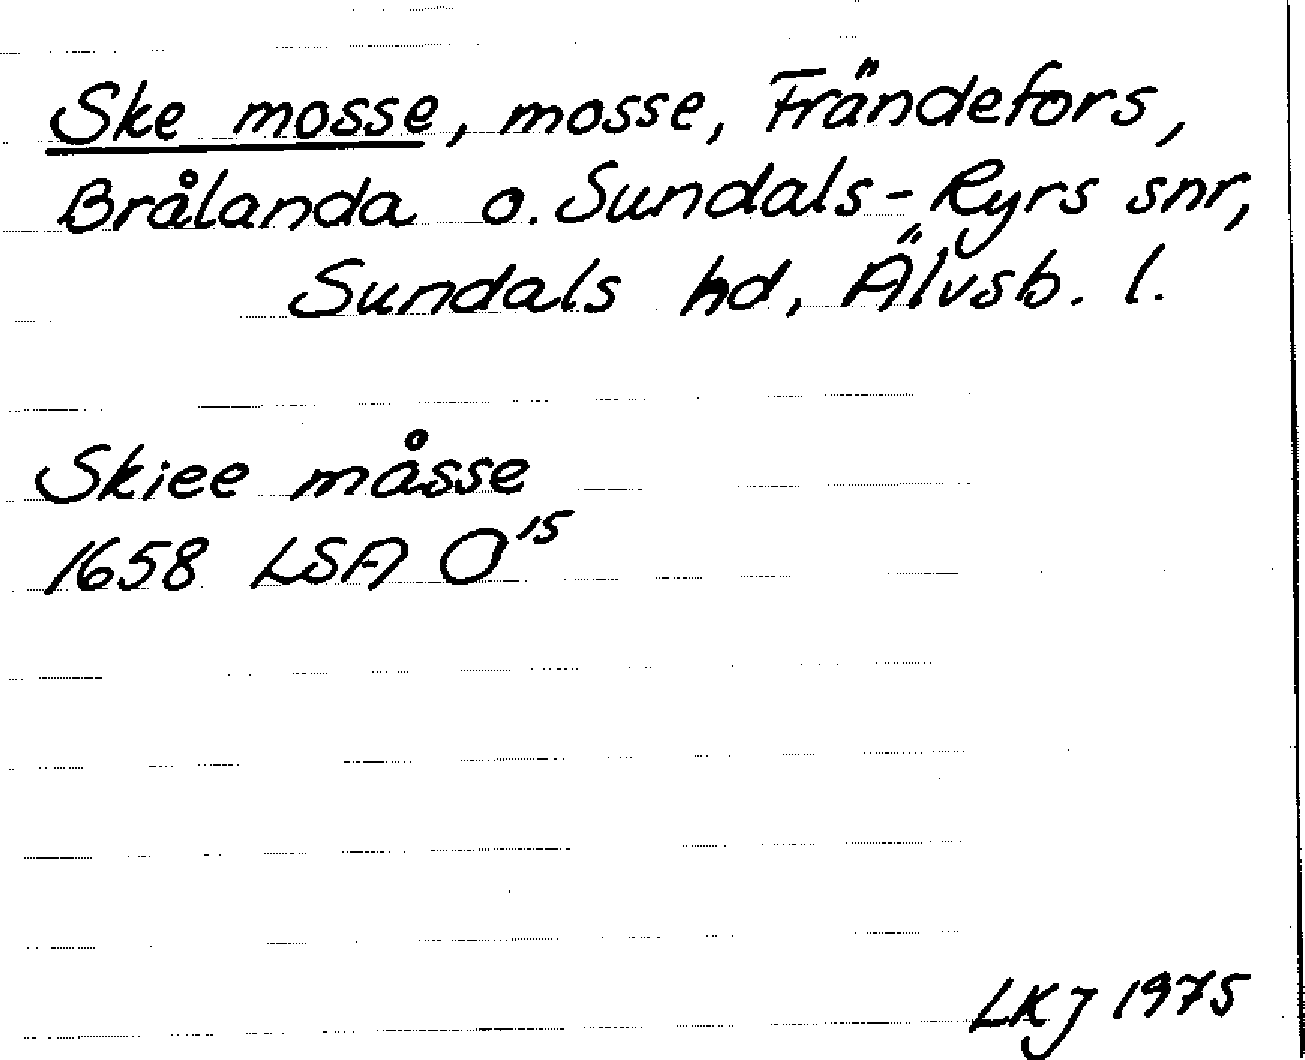 Ske mosse, mosse, Frändefors,
Brålanda o. Sundals-Ryrs snr,
Sundals hd, Älvsb. l.
Skiee måsse
1658 LSA O 15
LKJ 1975